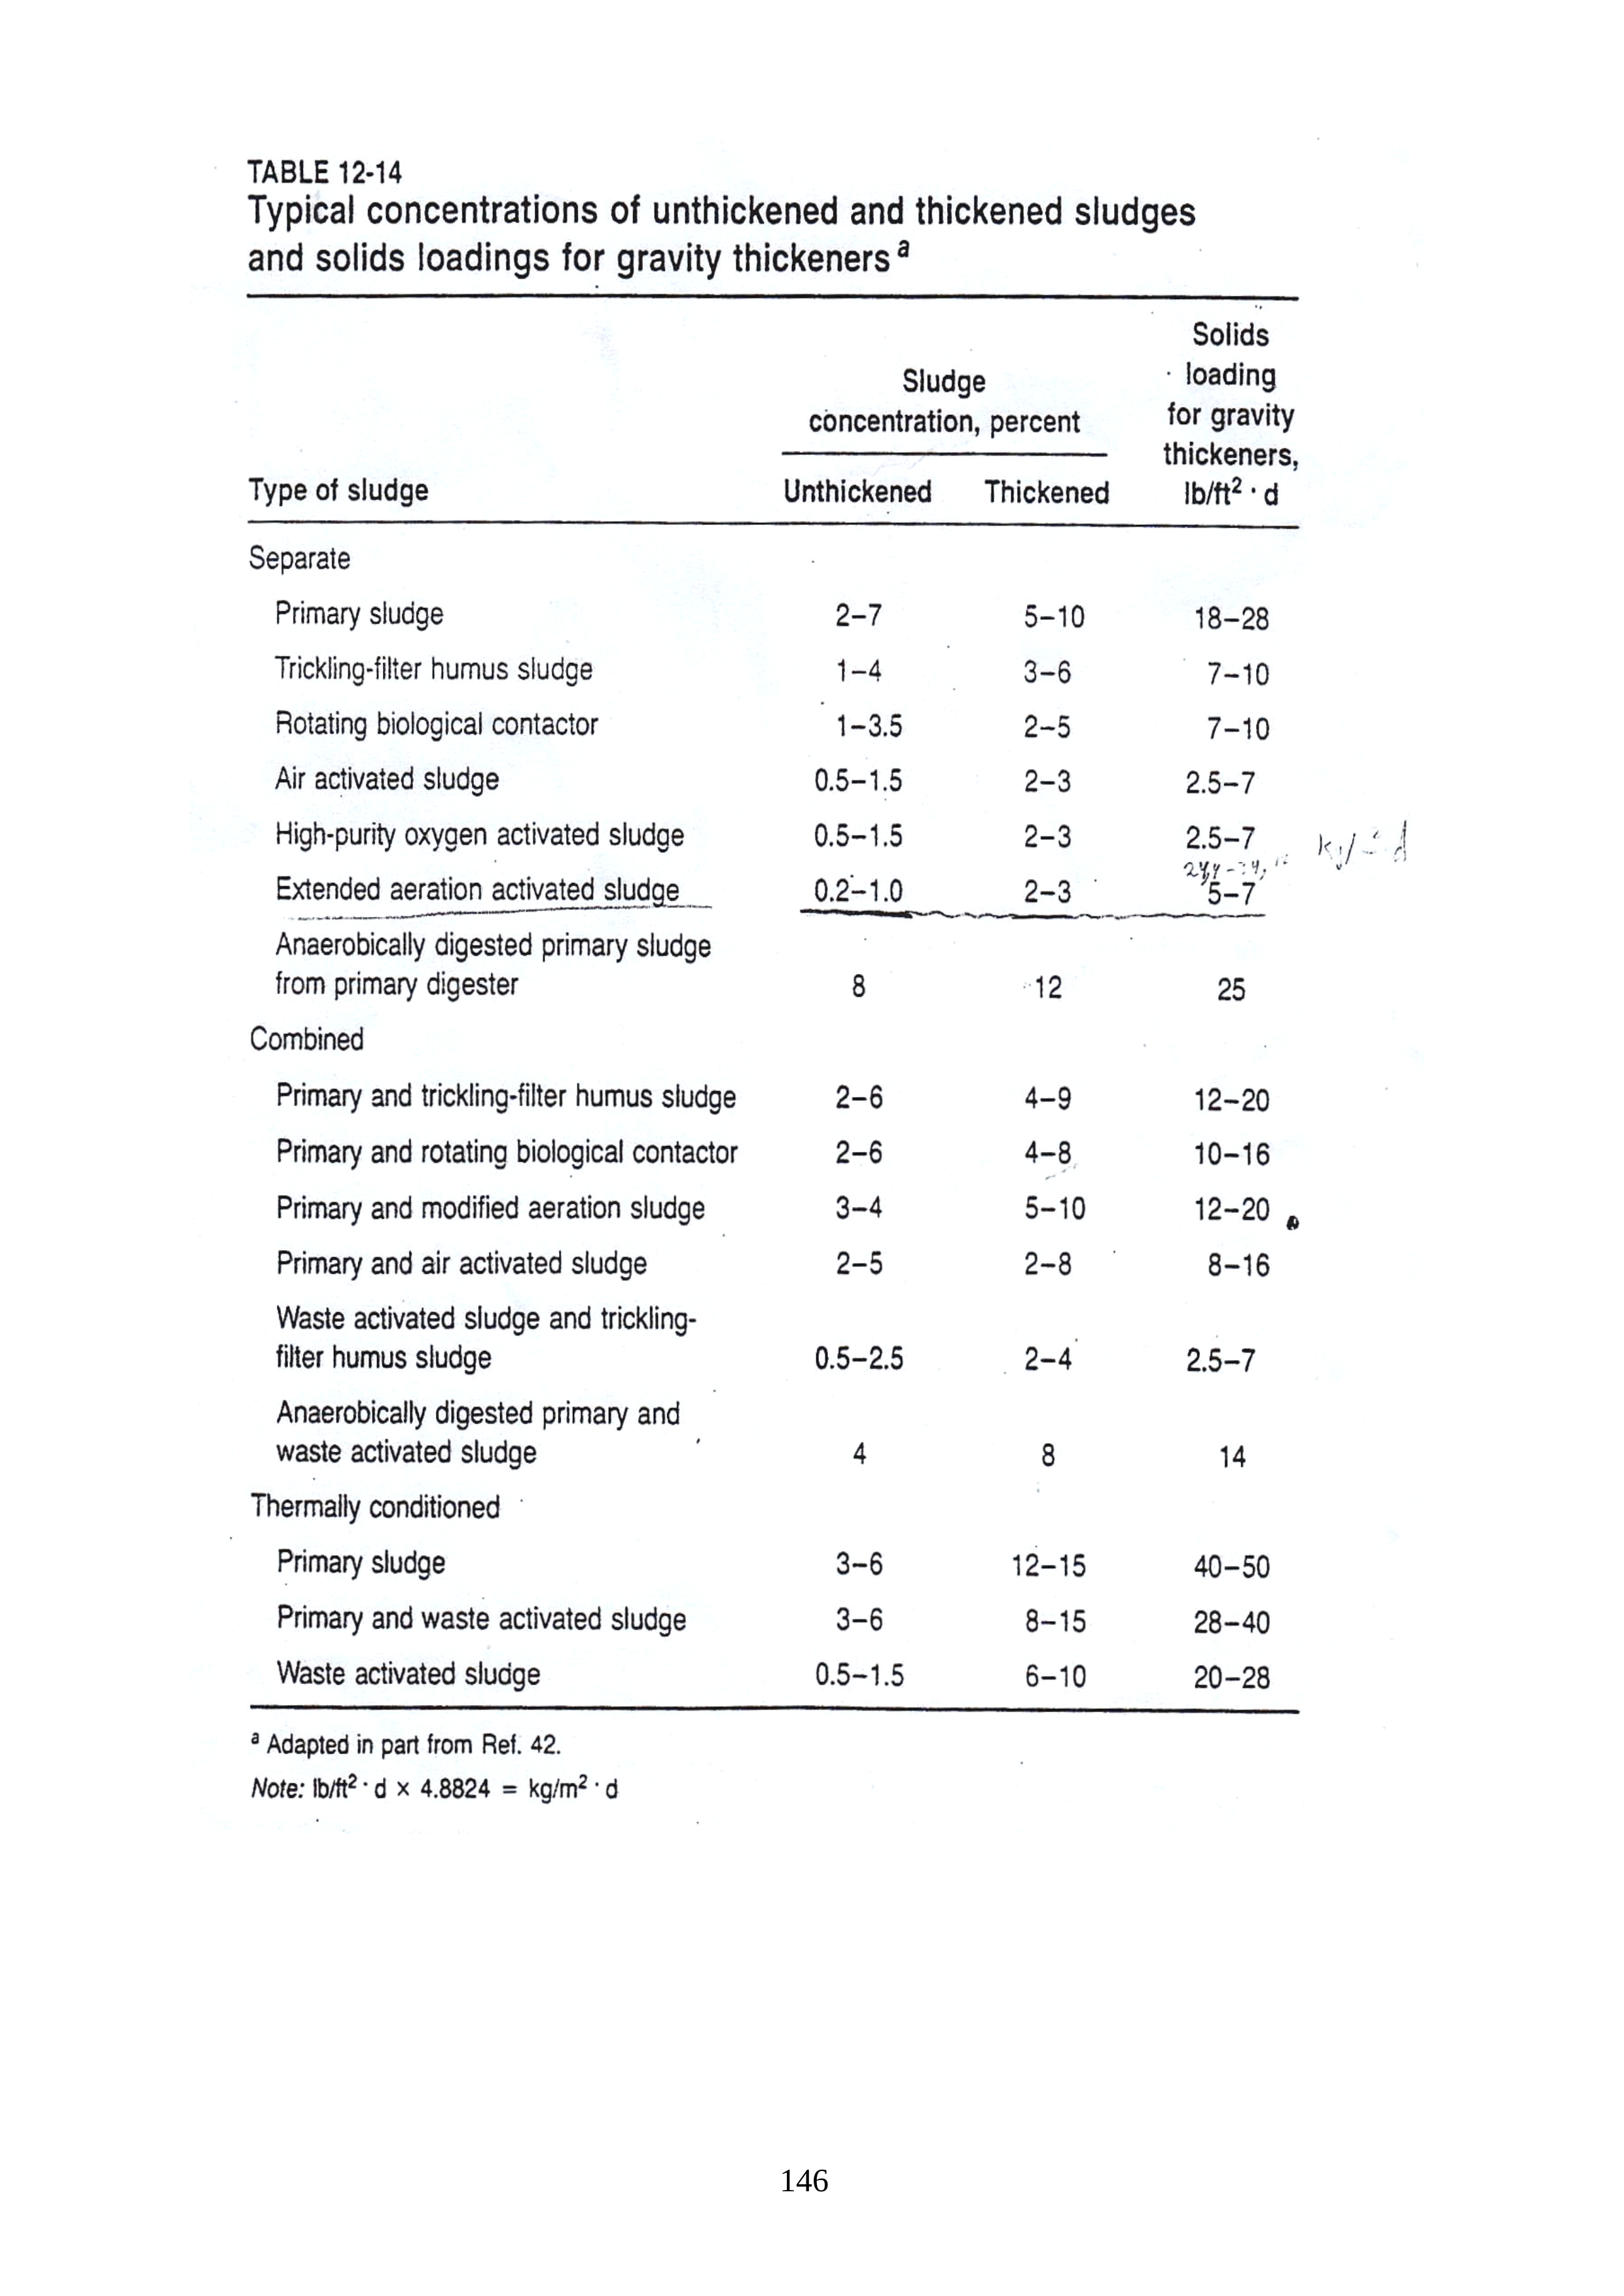 TABLE 12-14
Typical concentrations of unthickened and thickened sludges
and solids loadings for gravity thickeners a
Solids
loading
for gravity
thickeners,
lb/ft² · d
Sludge
concentration, percent
Type of sludge Unthickened Thickened
Separate
Primary sludge 2–7 5–10 18–28
Trickling-filter humus sludge 1–4 3–6 7–10
Rotating biological contactor 1–3.5 2–5 7–10
Air activated sludge 0.5–1.5 2–3 2.5–7
High-purity oxygen activated sludge 0.5–1.5 2–3 2.5–7
Extended aeration activated sludge 0.2–1.0 2–3 5–7
Anaerobically digested primary sludge
from primary digester 8 12 25
Combined
Primary and trickling-filter humus sludge 2–6 4–9 12–20
Primary and rotating biological contactor 2–6 4–8 10–16
Primary and modified aeration sludge 3–4 5–10 12–20
Primary and air activated sludge 2–5 2–8 8–16
Waste activated sludge and trickling-
filter humus sludge 0.5–2.5 2–4 2.5–7
Anaerobically digested primary and
waste activated sludge 4 8 14
Thermally conditioned
Primary sludge 3–6 12–15 40–50
Primary and waste activated sludge 3–6 8–15 28–40
Waste activated sludge 0.5–1.5 6–10 20–28
a Adapted in part from Ref. 42.
Note: lb/ft² · d x 4.8824 = kg/m² · d
146